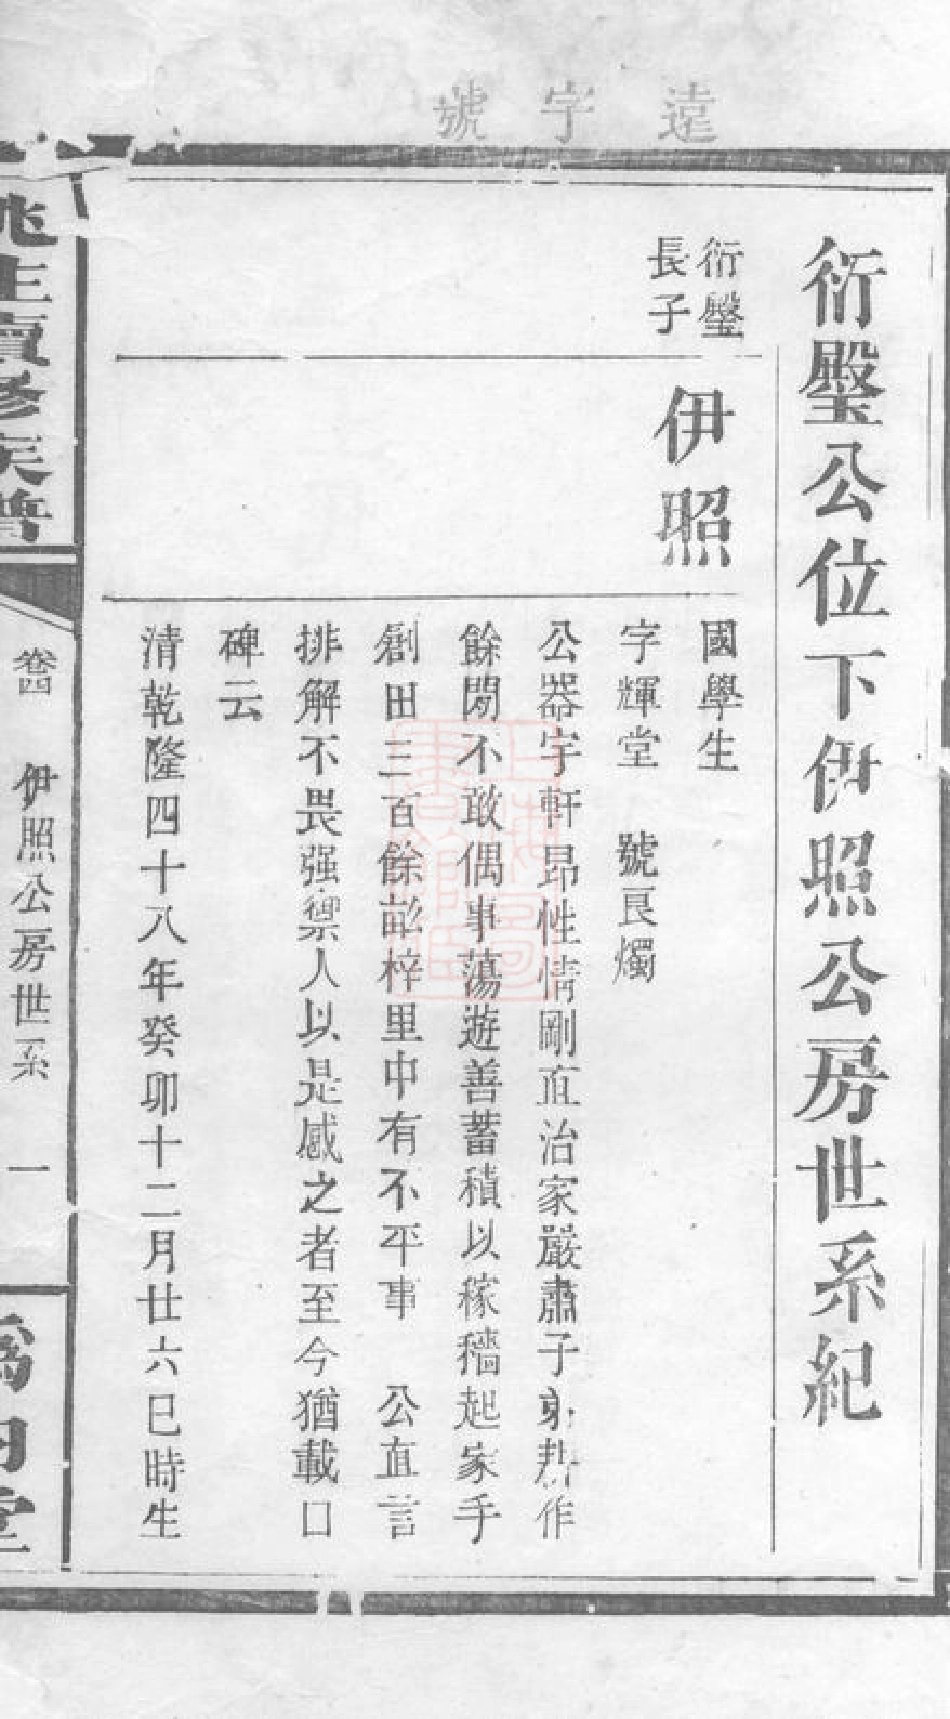 遠字號
衍璺公位下伊照公房世系紀
衍璺
長子
伊照
國學生
字輝堂 號艮燭
公器宇軒昂性情剛直治家嚴肅子弟耕作
餘閒不敢偶事蕩遊善蓄積以稼穡起家手
創田三百餘畝梓里中有不平事 公直言
排解不畏强禦人以是感之者至今猶載口
碑云
清乾隆四十八年癸卯十二月廿六巳時生
續修族譜
卷四 伊照公房世系 一